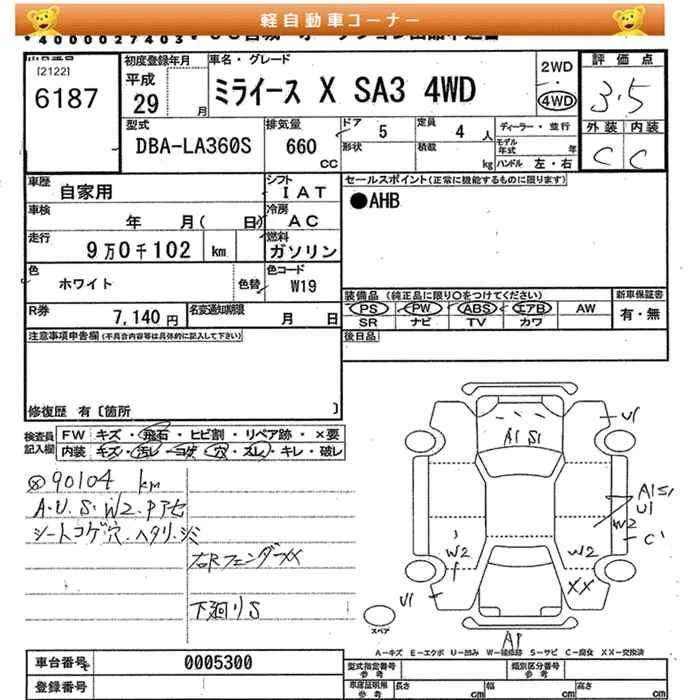 軽自動車コーナー
*4000027403*
[2122]
6187
初度登録年月
平成
29 月
車名・グレード
ミライース X SA3 4WD
2WD
・
4WD
評価点
3.5
外装 内装
C C
型式
DBA-LA360S
排気量
660
CC
ドア 5
形状
定員 4 人
積載 kg
ディーラー・並行
モデル
年式 年
ハンドル 左・右
車歴
自家用
シフト
IAT
車検
年 月( 日)
冷房
AC
走行
9万0千102 km
燃料
ガソリン
色
ホワイト
色替
色コード
W19
R券
7,140 円
名変通知期限
月 日
セールスポイント(正常に機能するものに限ります)
●AHB
装備品 (純正品に限り○をつけてください)
PS PW ABS エアB AW
SR ナビ TV カワ
新車保証書
有・無
後日品
注意事項申告欄(不具合内容等は具体的に記入して下さい)
修復歴 有〔箇所 〕
検査員
記入欄
FW キズ・飛石・ヒビ割・リペア跡・×要
内装 キズ・汚レ・コゲ・穴・スレ・キレ・破レ
90104 km
A.U.S.W2.Pアセ
シートコゲ穴.ヘタリ.シミ
右Rフェンダーxx
下廻りS
A1 S1
U1
A1S1
U1
W2
C1
W2
W2
XX
U1
A1
スペア
A-キズ E-エクボ U-凹み W-補修跡 S-サビ C-腐食 XX-交換済
車台番号
0005300
登録番号
型式指定番号
参考
類別区分番号
参考
車庫証明用
参考
長さ cm
幅 cm
高さ cm